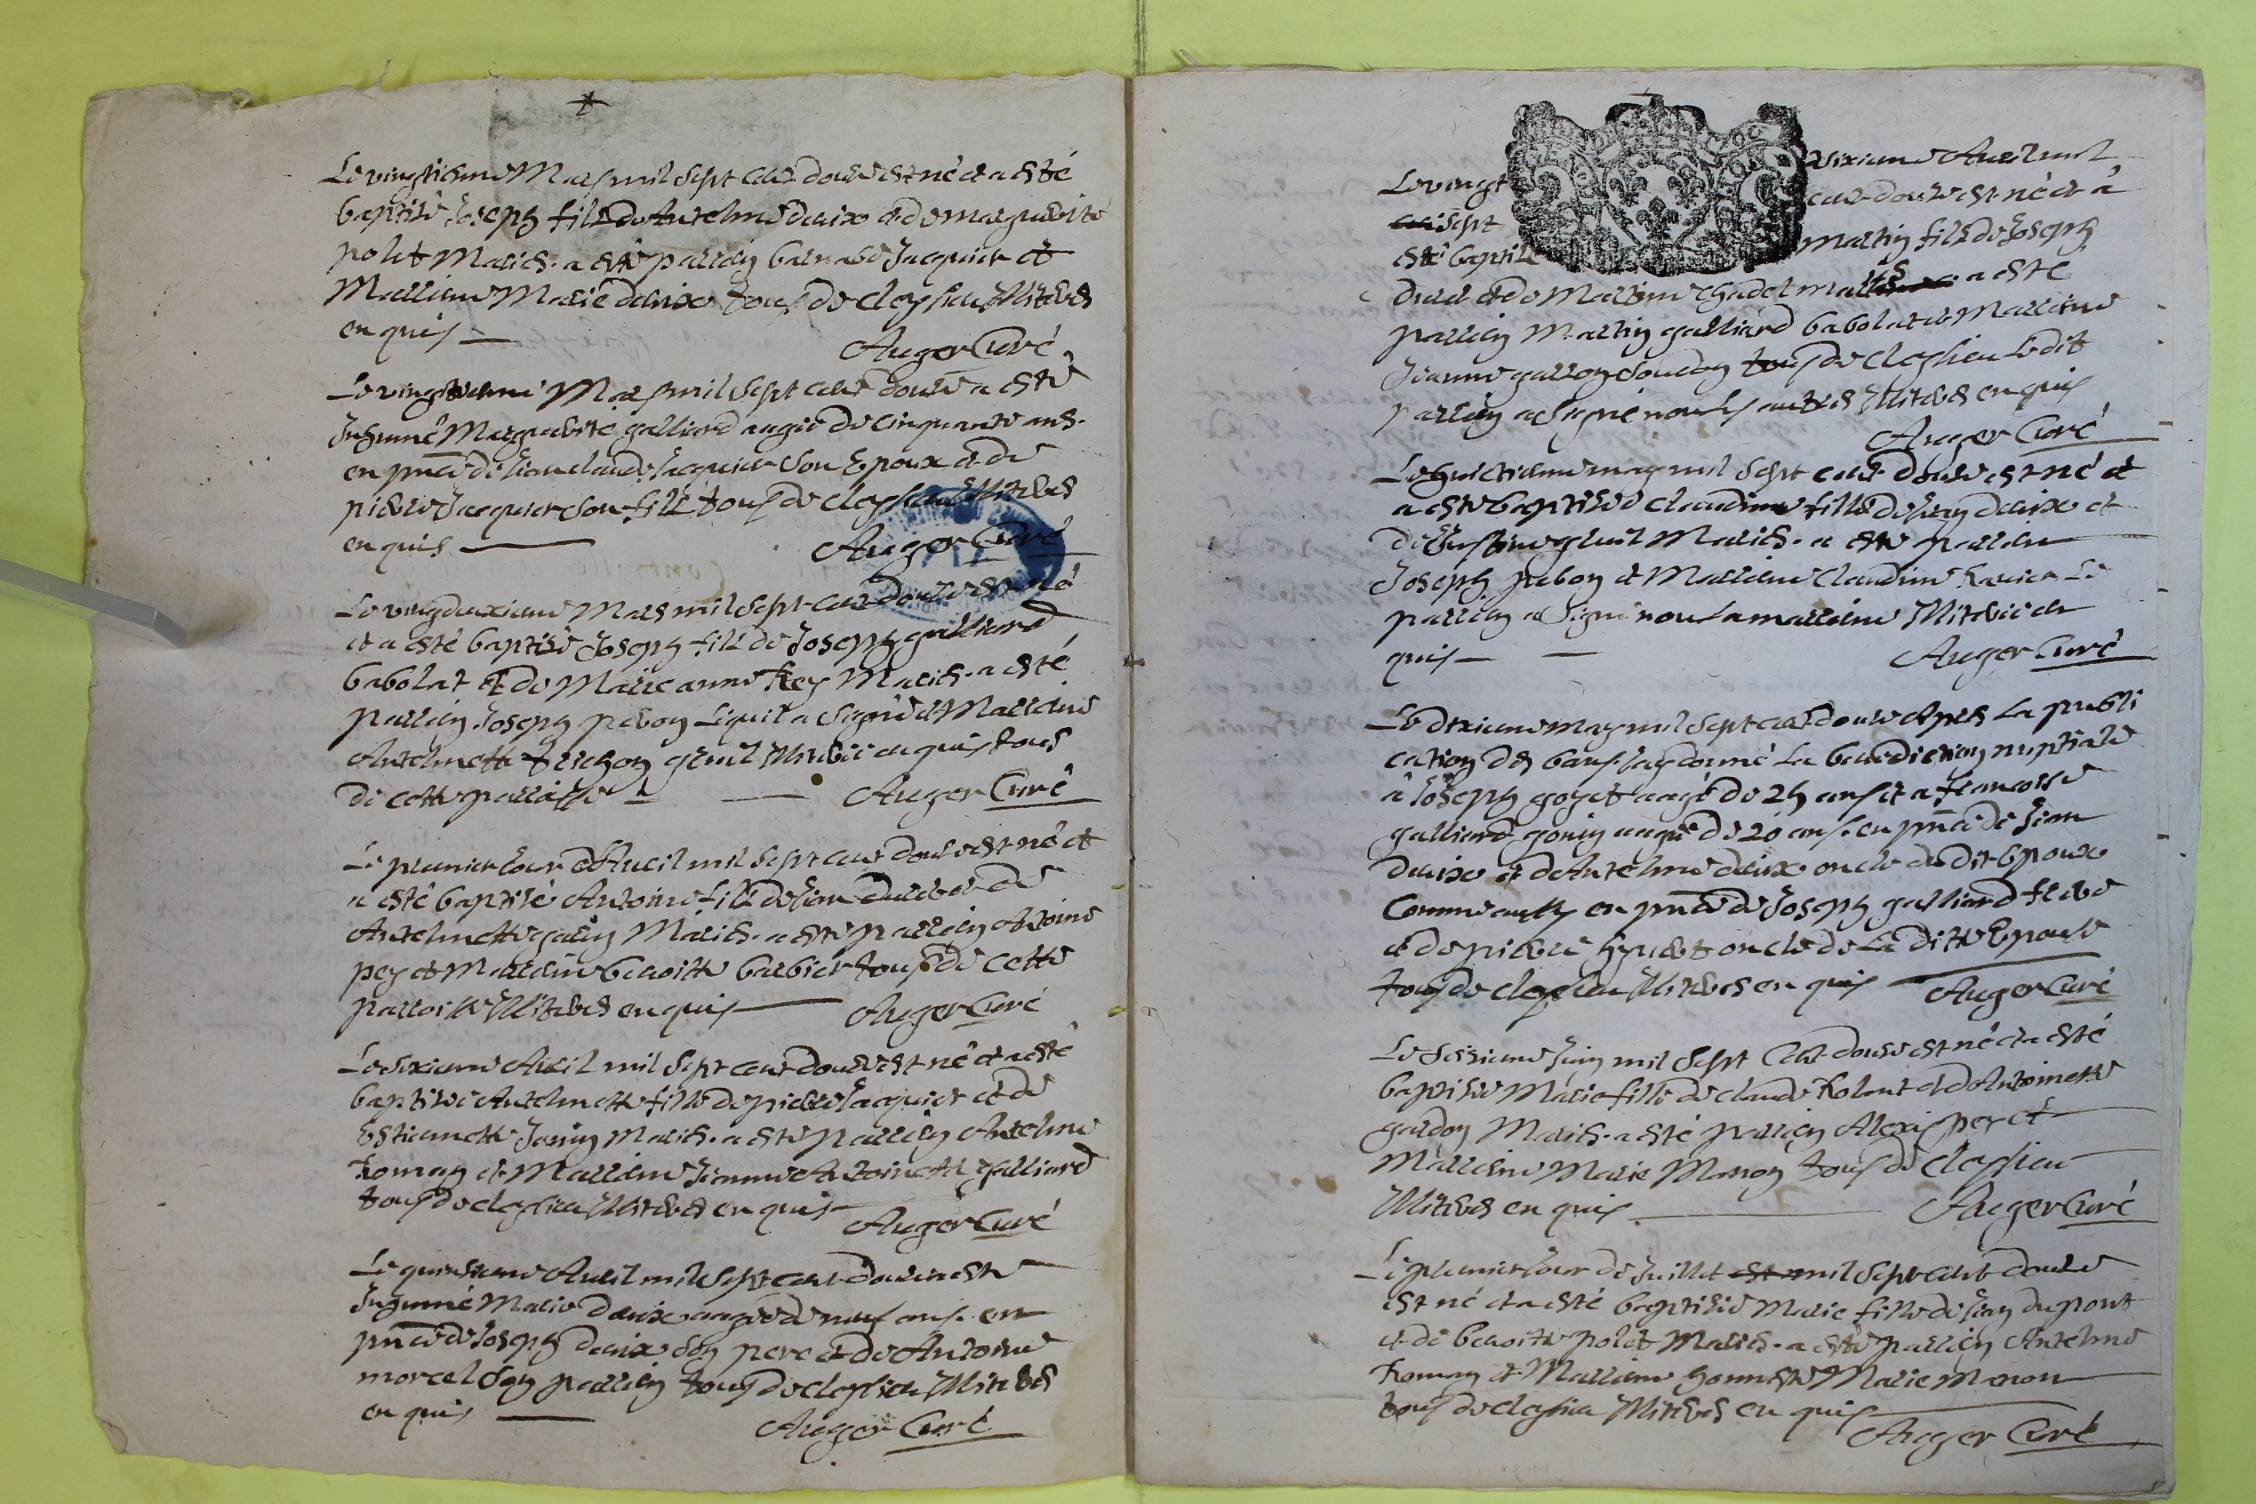 Le vingtiesme Mars mil sept cent douze est né et a esté
baptisé Joseph fils de Antelme deuix et de marguerite
polet Mariés. a esté parrein barnabé Jacquier et
Marreine Marie deuix tous de Cleyssieu Illiterés
enquis
Auger Curé
Le vingtiesme Mars mil sept cent douze a esté
Inhumé Marguerite galliard aagée de cinquante ans.
en pñce de Jean claude Jacquier son Epoux et de
pierre Jacquier son fils tous de Cleyssieu Illiterés
enquis
Auger Curé
Le vingdeuxieme Mars mil sept cent douze est né
et a esté baptisé Joseph fils de Joseph galliard
babolat et de Marie anne Rey Mariés. a esté
parrein Joseph pebon lequel a signé et Marreine
Antelmette trichon Illiterée enquis tous
de cette parroisse
Auger Curé
Le premier Jour d'Avril mil sept cent douze est né et
a esté baptisé Antoine fils de Jean et de
Antelmette garin Mariés. a esté parrein Antoine
pey et Marreine benoitte barbier tous de cette
parroisse Illiterés enquis
Auger Curé
Le sixieme Avril mil sept cent douze est né et a esté
baptisée Antelmette fille de pierre Jacquier et de
Estiennette Janin Mariés. a esté parrein Antelme
Roman et Marreine Jeanne Antoinette galliard
tous de Cleyssieu Illiterés enquis
Auger Curé
Le quinsieme Avril mil sept cent douze a esté
Inhumé Marie deuix aagée de neuf ans. en
pñce de Joseph deuix son pere et de Antoine
morcel son parrein tous de Cleyssieu Illiterés
enquis
Auger Curé
Le vingt sixieme Avril mil
sept cent douze est né et a
esté baptisé Martin fils de Joseph
et de Martine Chadel mariés a esté
parrein Martin galliard babolat et Marreine
Jeanne tous de Cleyssieu Ledit
parrein a signé non les autres Illiterés enquis
Auger Curé
Le huictieme may mil sept cent douze est né et
a esté baptisée Claudine fille de Jean deuix et
de Mariés. a esté parrein
Joseph pebon et Marreine Claudine Ravier Le
parrein a signé non la marreine Illiterée en
quis
Auger Curé
Le dixieme may mil sept cent douze apres La publi
cation des bans Jay donné La benediction nuptiale
à Joseph goyet aagé de 25 ans et a francoise
galliard gonin aagée de 20 ans. en pñce de Jean
deuix et de Antelme deuix oncle dudit Epoux
Comme aussy en pñce de Joseph galliard frere
et de pierre oncle de La ditte Epouse
tous de Cleyssieu Illiterés enquis
Auger Curé
Le sixieme Juin mil sept Cent douze est né et a esté
baptisée Marie fille de claude Rolant et de Antoinette
gardon Mariés. a esté parrein Alexis peret
Marreine Marie Monon tous de Cleyssieu
Illiterés enquis
Auger Curé
Le premier Jour de Juillet mil sept cent douze
est né et a esté baptisée Marie fille de Jean dupont
et de benoitte polet Mariés. a esté parrein Antelme
Roman et Marreine honneste Marie Monon
tous de Cleyssieu Illiterés enquis
Auger Curé